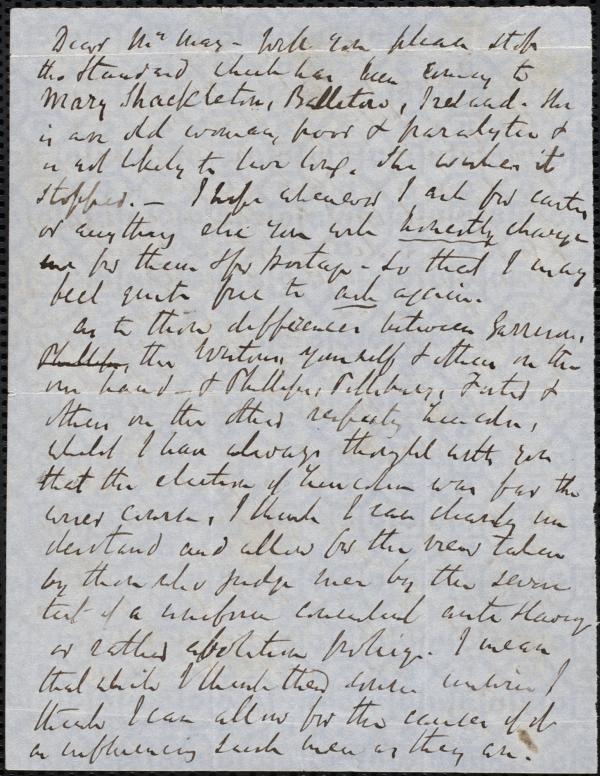 Dear Mr May - Will you please stop
the Standard which has been coming to
Mary Shackleton, Ballitore, Ireland. She
is an old woman, poor & paralytic &
is not likely to live long. She wishes it
stopped. - I hope whenever I ask for cartes
or anything else you will honestly charge
me for them & for postage - so that I may
feel quite free to ask again.
As to those differences between Garrison,
Phillips, the Westons, yourself & others on the
one hand - & Phillips, Pillsbury, Foster &
others on the other respecting Lincoln,
whilst I have always thought with you
that the election of Lincoln was far the
wiser course, I think I can clearly un
derstand and allow for the view taken
by those who judge men by the severe
test of a uniform consistent anti slavery
or rather abolition policy. I mean
that while I think their course unwise I
think I can allow for the causes of it
as influencing such men as they are.